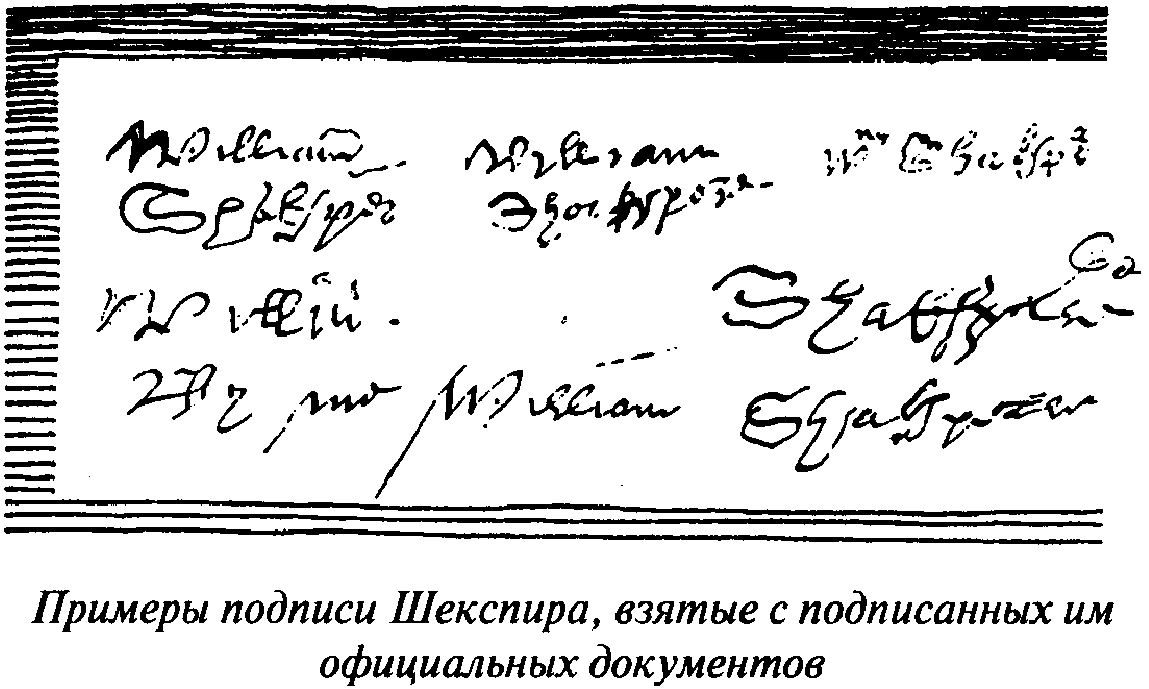 William William Wm Shakspe
Shaksper
Willm
By me William Shakspeare
Примеры подписи Шекспира, взятые с подписанных им
официальных документов